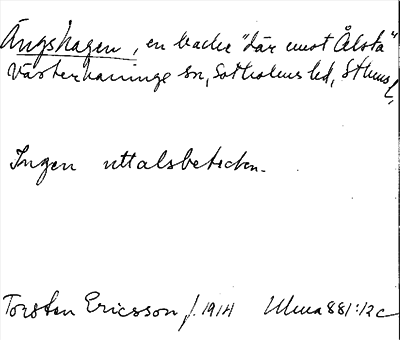 Ängshagen, en backe "där mot Ålsta"
Västerhaninge sn, Sotholms hd, Sthms l,
Ingen uttalsbeteckn.
Torsten Ericsson f. 1914 Ulma 881:12 c